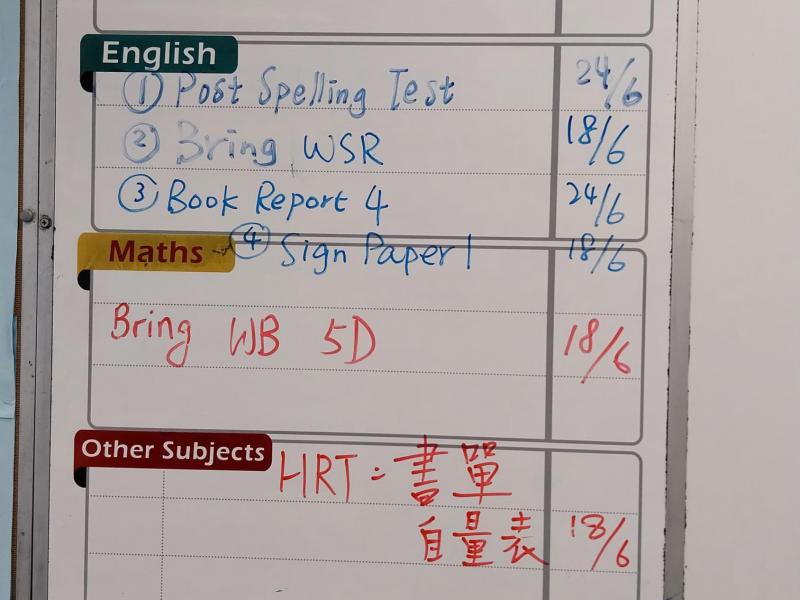 English
① Post Spelling Test 24/6
② Bring WSR 18/6
③ Book Report 4 24/6
Maths
④ Sign Paper 1 18/6
Bring WB 5D 18/6
Other Subjects
HRT = 書單
自量表 18/6